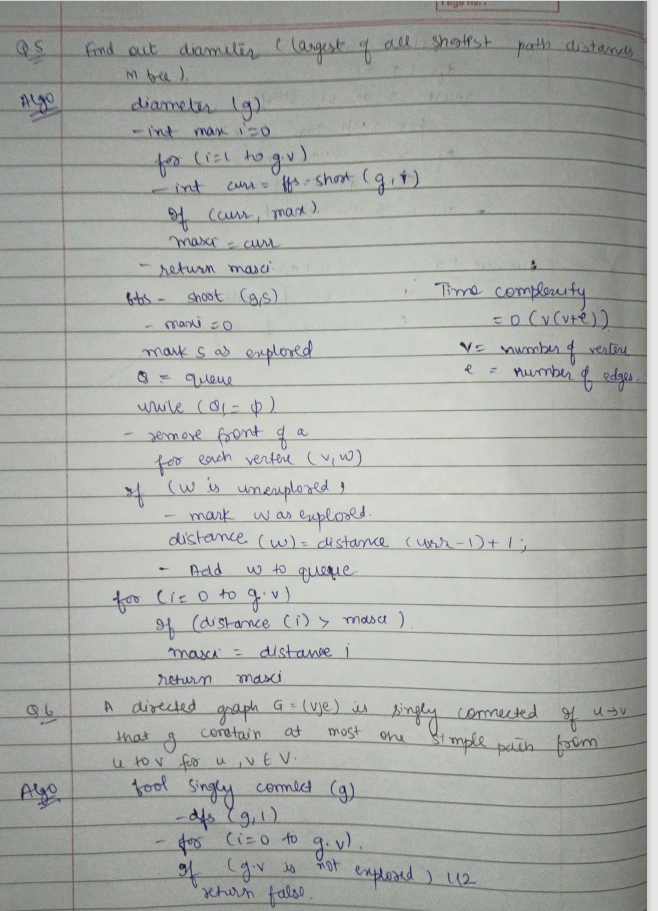 Page No.:
Q5 Find out diameter (largest of all shortest path distances
in tree).
Algo diameter (g)
- int maxi=0
for (i=1 to g.v)
- int curr = bfs-short (g, i)
If (curr, max).
maxi = curr
- return maxi
bfs - shoot (g,s)
- maxi =0
mark s as explored
Q = queue
while (Q != ϕ)
- remove front of a
for each vertex (v, w)
if (w is unexplored,
- mark w as explored.
distance (w) = distance (curr-1)+1;
- Add w to queue
for (i= 0 to g.v)
If (distance (i) > maxi).
maxi = distance i
return maxi
Time complexity
= O (v(v+e))
v= number of vertex
e = number of edges.
Q6 A directed graph G = (v,e) is singly connected if u→v
that g contain at most one simple path from
u to v for u, v ∈ V.
Algo bool singly connect (g)
- dfs (g,1)
- for (i=0 to g.v).
if (g.v is not explored)
return false.